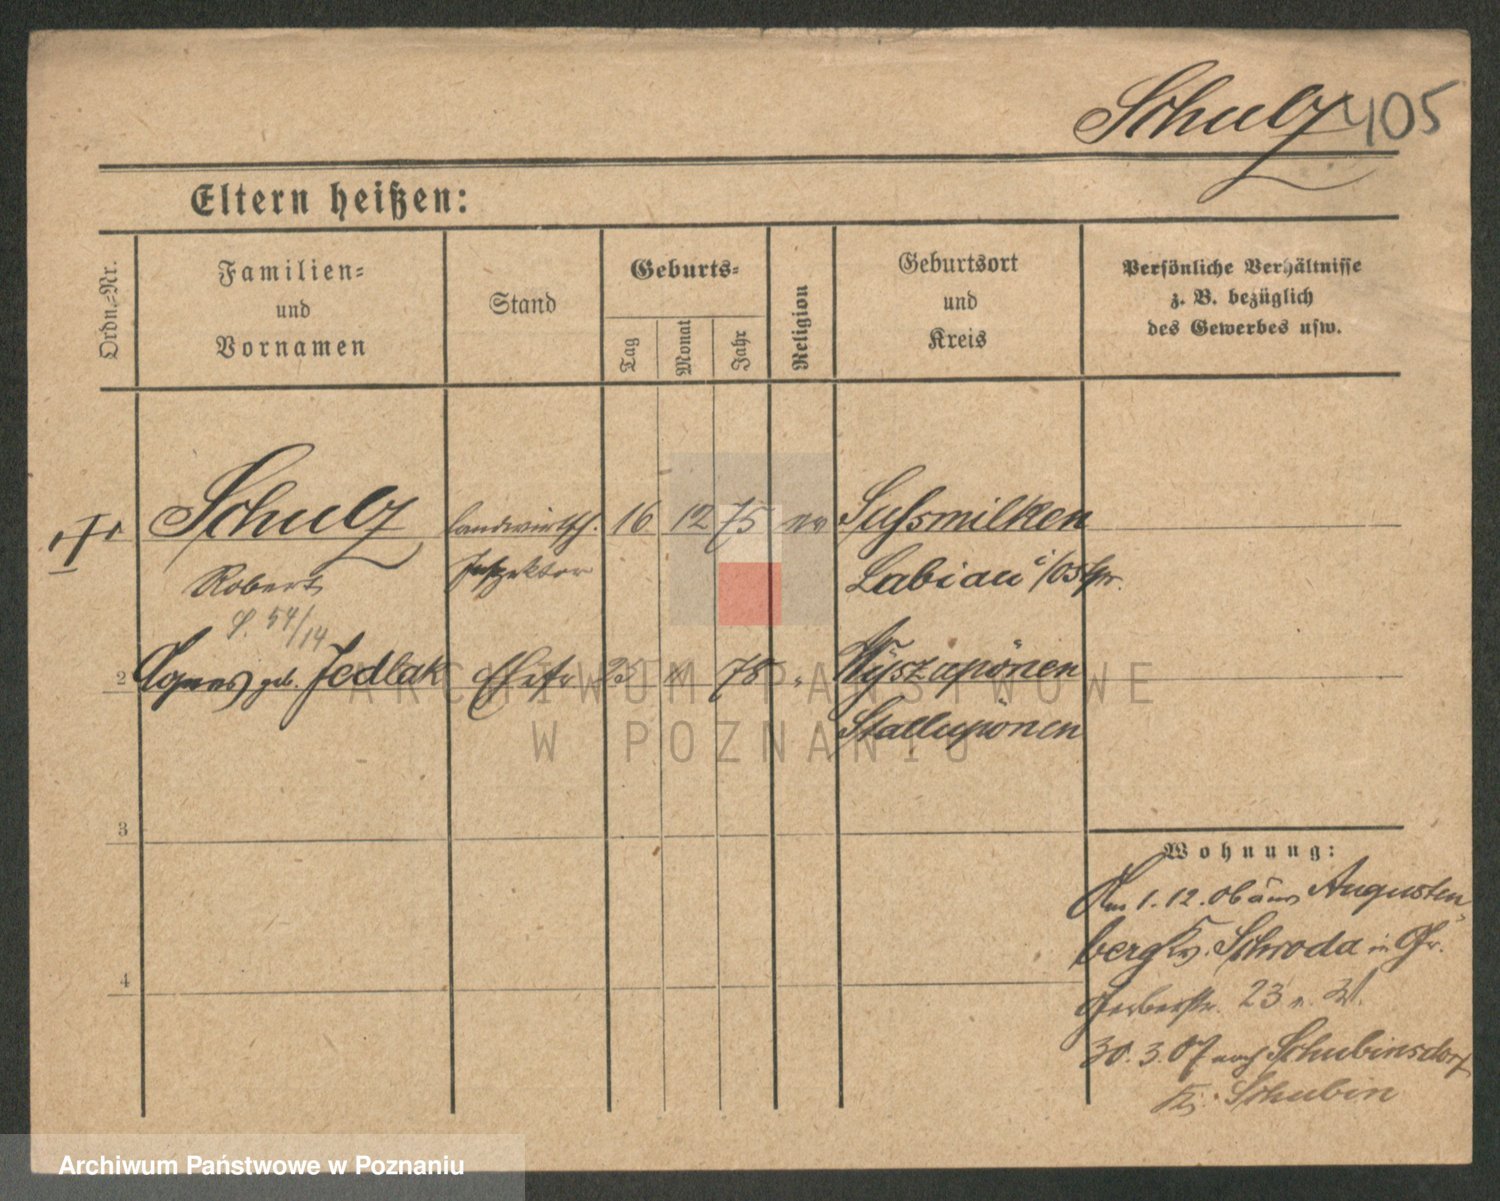 Schulz 405
Eltern heißen:
Ordn.-Nr.
Familien-
und
Vornamen
Stand
Geburts-
Tag
Monat
Jahr
Religion
Geburtsort
und
Kreis
Persönliche Verhältnisse
z. B. bezüglich
des Gewerbes usw.
Schulz landwirtsch. 16 12 75 ev Sussmilken
Robert Inspektor Labiau i/Ostpr.
54/14
2 Agnes geb. Jedlak Ehefr 78 " Wyszupönen
Stallupönen
3
4
Wohnung:
Am 1.12.06 aus Augusten
berg Kr. Schroda in Gr.
Gerberstr. 23
30.3.07 nach Schubinsdorf
Kr. Schubin
ARCHIWUM PAŃSTWOWE
W POZNANIU
Archiwum Państwowe w Poznaniu